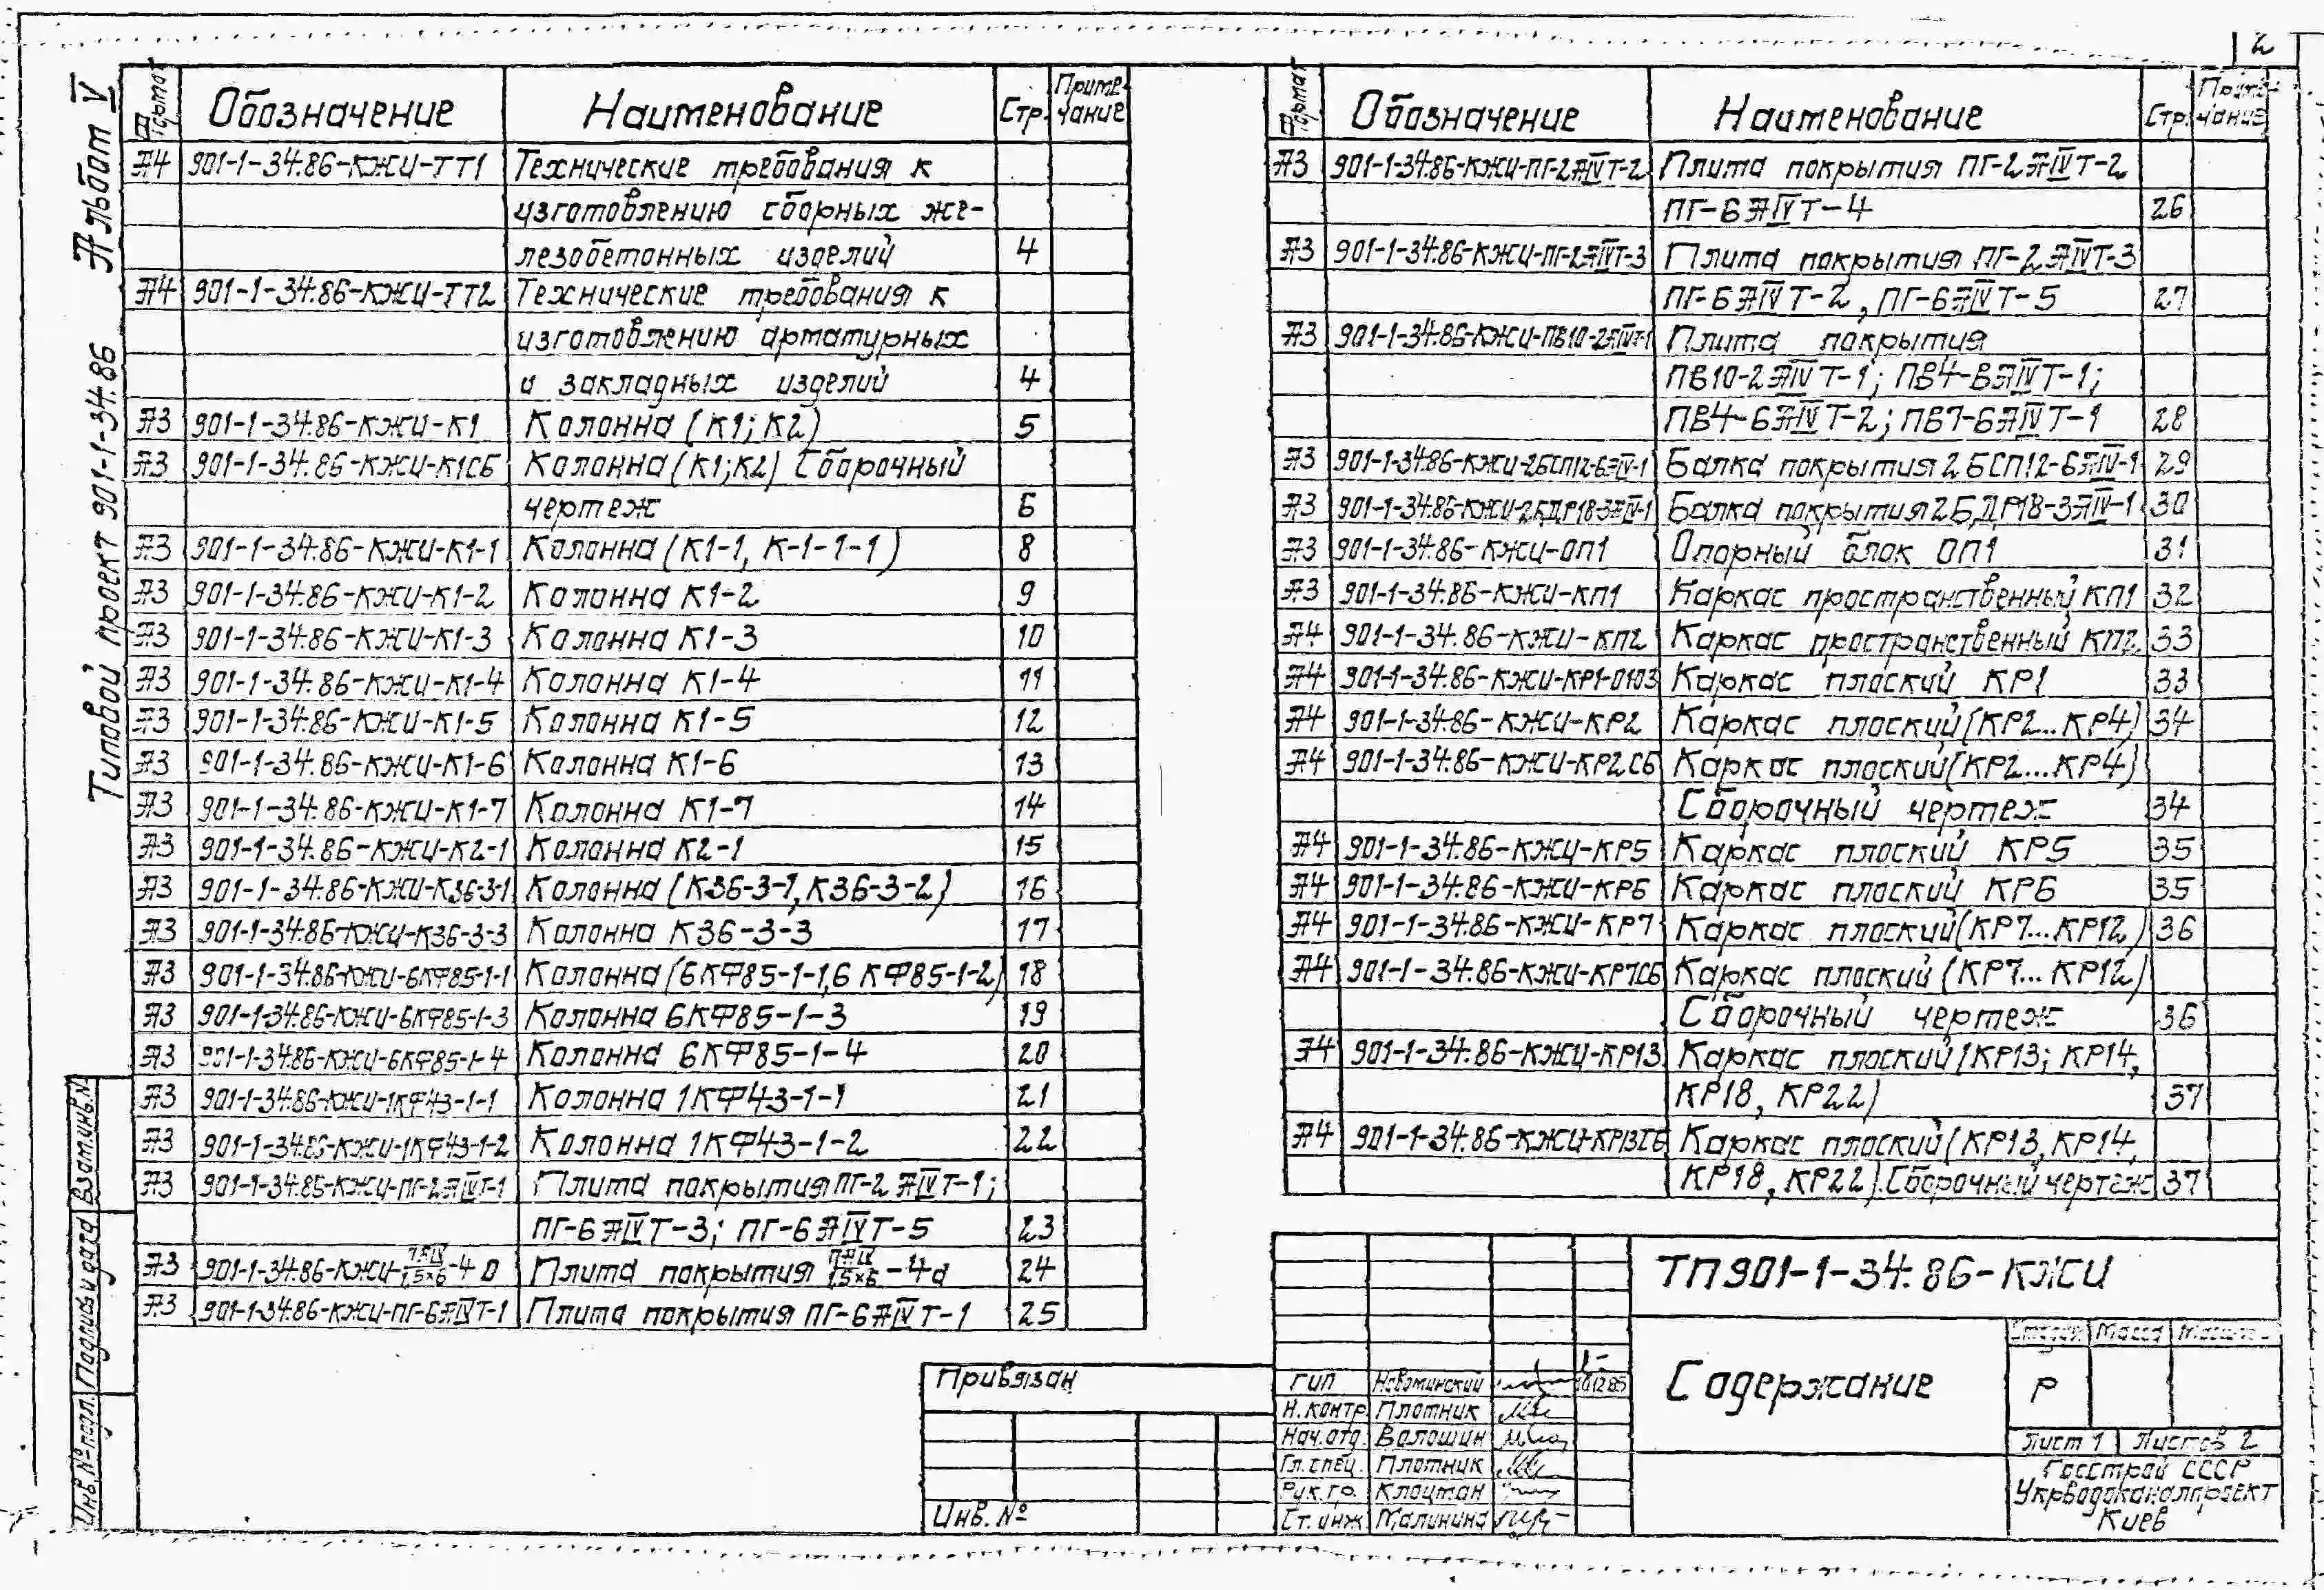 2
Альбом V
Типовой проект 901-1-34.86
Формат Обозначение Наименование Стр. Примечание
А4 901-1-34.86-КЖИ-ТТ1 Технические требования к
изготовлению сборных же-
лезобетонных изделий 4
А4 901-1-34.86-КЖИ-ТТ2 Технические требования к
изготовлению арматурных
и закладных изделий 4
А3 901-1-34.86-КЖИ-К1 Колонна (К1; К2) 5
А3 901-1-34.86-КЖИ-К1СБ Колонна (К1;К2) Сборочный
чертеж 6
А3 901-1-34.86-КЖИ-К1-1 Колонна (К1-1, К-1-1-1) 8
А3 901-1-34.86-КЖИ-К1-2 Колонна К1-2 9
А3 901-1-34.86-КЖИ-К1-3 Колонна К1-3 10
А3 901-1-34.86-КЖИ-К1-4 Колонна К1-4 11
А3 901-1-34.86-КЖИ-К1-5 Колонна К1-5 12
А3 901-1-34.86-КЖИ-К1-6 Колонна К1-6 13
А3 901-1-34.86-КЖИ-К1-7 Колонна К1-7 14
А3 901-1-34.86-КЖИ-К2-1 Колонна К2-1 15
А3 901-1-34.86-КЖИ-К36-3-1 Колонна (К36-3-1, К36-3-2) 16
А3 901-1-34.86-КЖИ-К36-3-3 Колонна К36-3-3 17
А3 901-1-34.86-КЖИ-6КФ85-1-1 Колонна (6КФ85-1-1, 6КФ85-1-2) 18
А3 901-1-34.86-КЖИ-6КФ85-1-3 Колонна 6КФ85-1-3 19
А3 901-1-34.86-КЖИ-6КФ85-1-4 Колонна 6КФ85-1-4 20
А3 901-1-34.86-КЖИ-1КФ43-1-1 Колонна 1КФ43-1-1 21
А3 901-1-34.86-КЖИ-1КФ43-1-2 Колонна 1КФ43-1-2 22
А3 901-1-34.85-КЖИ-ПГ-2АIVТ-1 Плита покрытия ПГ-2АIVТ-1;
ПГ-6АIVТ-3; ПГ-6АIVТ-5 23
А3 901-1-34.86-КЖИ-ПАIV/1,5×6-4а Плита покрытия ПАIV/1,5×6-4а 24
А3 901-1-34.86-КЖИ-ПГ-6АIVТ-1 Плита покрытия ПГ-6АIVТ-1 25
Формат Обозначение Наименование Стр. Примечание
А3 901-1-34.86-КЖИ-ПГ-2АIVТ-2 Плита покрытия ПГ-2АIVТ-2
ПГ-6АIVТ-4 26
А3 901-1-34.86-КЖИ-ПГ-2АIVТ-3 Плита покрытия ПГ-2АIVТ-3
ПГ-6АIVТ-2, ПГ-6АIVТ-5 27
А3 901-1-34.86-КЖИ-ПВ10-2АIVТ-1 Плита покрытия
ПВ10-2АIVТ-1; ПВ4-6АIVТ-1;
ПВ4-6АIVТ-2; ПВ7-6АIVТ-1 28
А3 901-1-34.86-КЖИ-2БСП12-6АIV-1 Балка покрытия 2БСП12-6АIV-1 29
А3 901-1-34.86-КЖИ-2БДР18-3АIV-1 Балка покрытия 2БДР18-3АIV-1 30
А3 901-1-34.86-КЖИ-ОП1 Опорный блок ОП1 31
А3 901-1-34.86-КЖИ-КП1 Каркас пространственный КП1 32
А4 901-1-34.86-КЖИ-КП2 Каркас пространственный КП2 33
А4 901-1-34.86-КЖИ-КР1-0103 Каркас плоский КР1 33
А4 901-1-34.86-КЖИ-КР2 Каркас плоский (КР2...КР4) 34
А4 901-1-34.86-КЖИ-КР2СБ Каркас плоский (КР2...КР4)
Сборочный чертеж 34
А4 901-1-34.86-КЖИ-КР5 Каркас плоский КР5 35
А4 901-1-34.86-КЖИ-КР6 Каркас плоский КР6 35
А4 901-1-34.86-КЖИ-КР7 Каркас плоский (КР7...КР12) 36
А4 901-1-34.86-КЖИ-КР7СБ Каркас плоский (КР7...КР12)
Сборочный чертеж 36
А4 901-1-34.86-КЖИ-КР13 Каркас плоский (КР13; КР14,
КР18, КР22) 37
А4 901-1-34.86-КЖИ-КР13СБ Каркас плоский (КР13, КР14,
КР18, КР22). Сборочный чертеж 37
Взам.инв.№
Подпись и дата
Инв.№ подл.
Привязан
Инв. №
ГИП Новоминский 10.12.85
Н.контр Плотник
Нач.отд Волошин
Гл.спец. Плотник
Рук.гр. Клоцман
Ст.инж Малинина
ТП901-1-34.86-КЖИ
Содержание
Стадия Масса Масштаб
Р
Лист 1 Листов 2
Госстрой СССР
Укрводоканалпроект
Киев